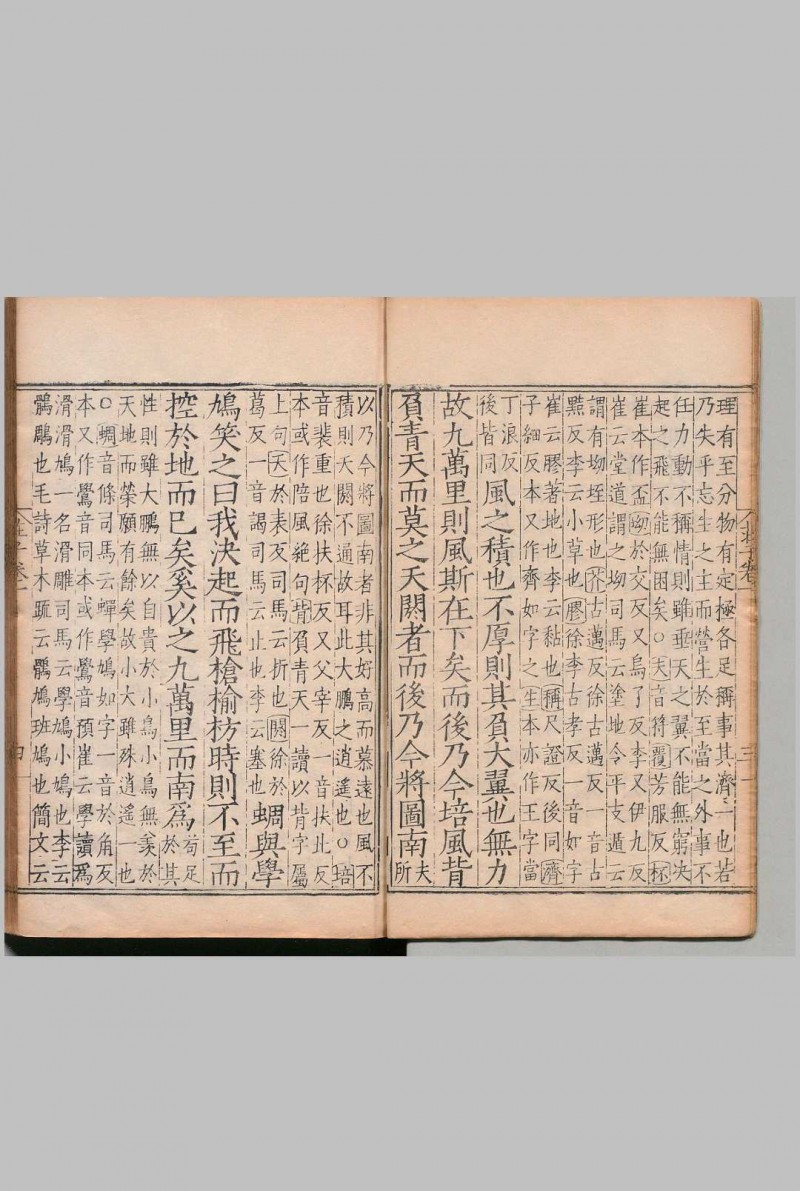 理有至分物有定極各足稱事其濟一也若
乃失乎忘生之主而營生於至當之外事不
任力動不稱情則雖垂天之翼不能無窮決
起之飛不能無困矣○夭音符覆芳服反杯
崔本作盃㘭於交反又烏了反李又伊九反
崔云堂道謂之㘭司馬云塗地令平支遁云
謂有㘭垤形也芥古邁反徐古邁反一音古
黠反李云小草也膠徐李古孝反一音如字
崔云膠著地也李云黏也稱尺證反後同濟
子細反本又作齊如字之生本亦作王字當
丁浪反
後皆同
風之積也不厚則其負大翼也無力
故九萬里則風斯在下矣而後乃今培風背
負青天而莫之夭閼者而後乃今將圖南
夫
所
以乃今將圖南者非其好高而慕遠也風不
積則夭閼不通故耳此大鵬之逍遙也○培
音裴重也徐扶杯反又父宰反一音扶北反
本或作陪風絶句背負青天一讀以背字屬
上句夭於表反司馬云折也閼徐於
葛反一音謁司馬云止也李云塞也
蜩與學
鳩笑之曰我決起而飛槍榆枋時則不至而
控於地而已矣奚以之九萬里而南爲
苟足
於其
性則雖大鵬無以自貴於小鳥小鳥無羨於
天地而榮願有餘矣故小大雖殊逍遥一也
○蜩音條司馬云蟬學鳩如字一音於角反
本又作鷽音同本或作鸒音預崔云學讀爲
滑滑鳩一名滑雕司馬云學鳩小鳩也李云
鶻鵰也毛詩草木疏云鶻鳩班鳩也簡文云
莊子卷一
三
莊子卷一
四